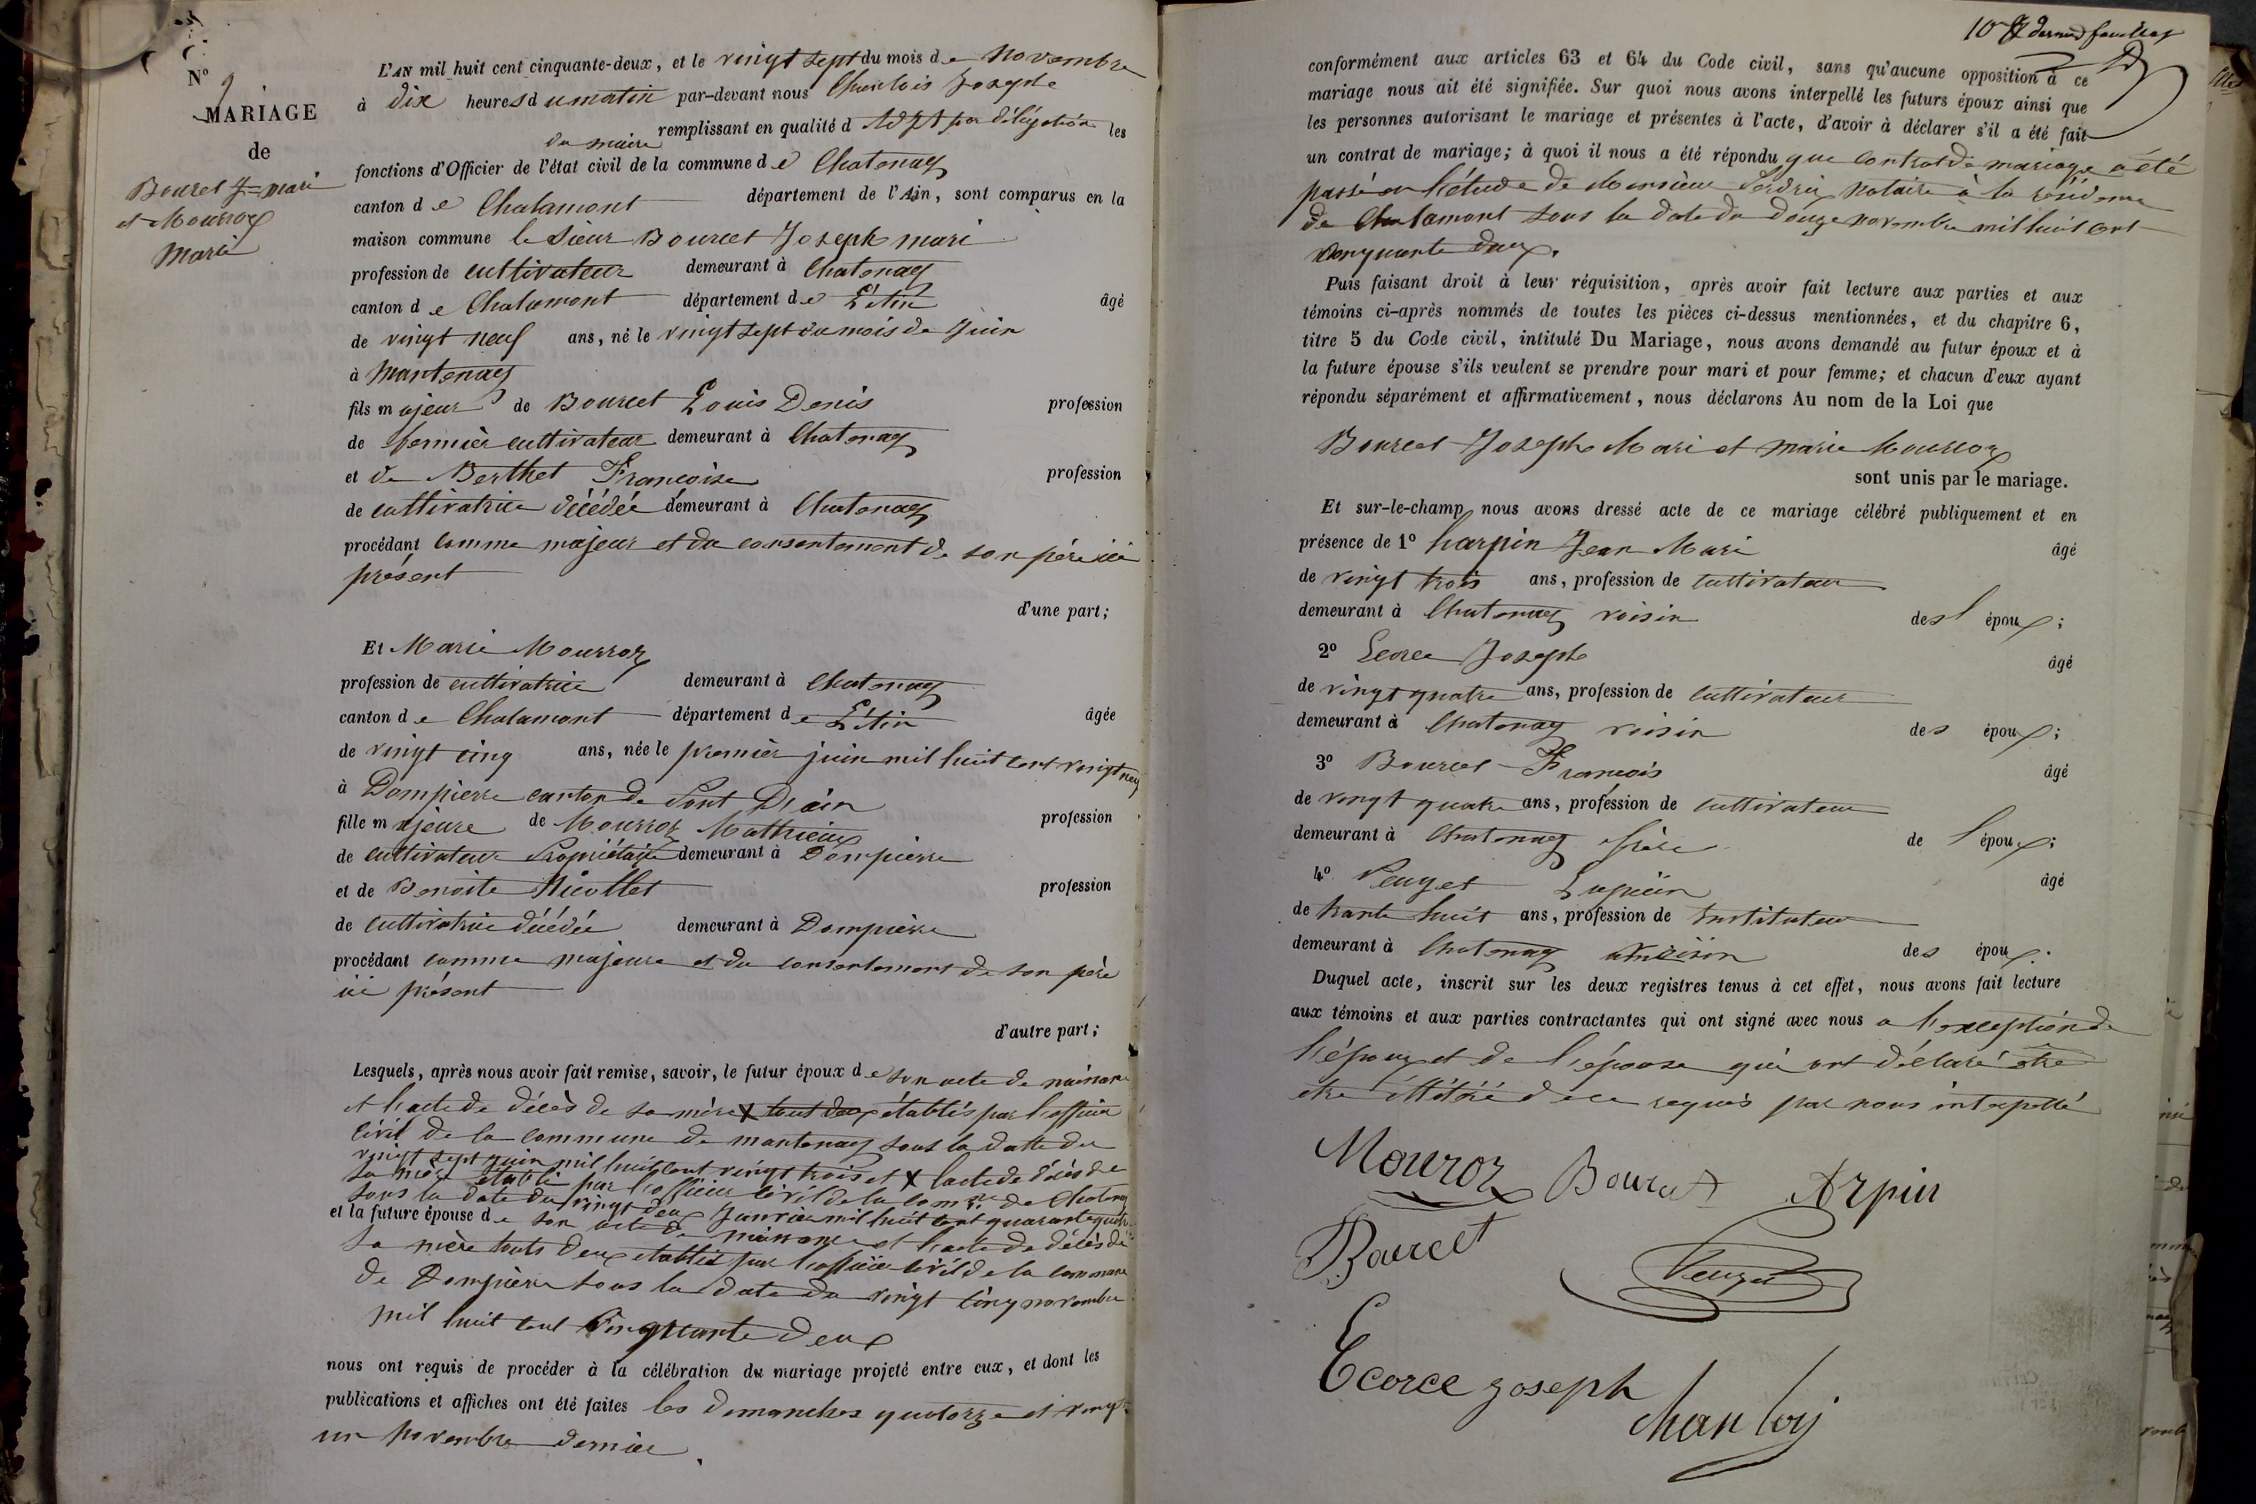 N° 9
MARIAGE
de
Bourcet J= mari
et Mourroz
Marie
L'AN mil huit cent cinquante-deux, et le vingt sept du mois de novembre
à dix heures du matin par-devant nous Chanlois Joseph
du maire remplissant en qualité d' Adjt par délégation les
fonctions d'Officier de l'état civil de la commune de Chatenay
canton de Chalamont département de l'Ain, sont comparus en la
maison commune le sieur Bourcet Joseph mari
profession de cultivateur demeurant à Chatenay
canton de Chalamont département de L'Ain âgé
de vingt neuf ans, né le vingt sept du mois de Juin
à Mantenay
fils majeur de Bourcet Louis Denis profession
de fermier cultivateur demeurant à Chatenay
et de Berthet Françoise profession
de cultivatrice décédée demeurant à Chatenay
procédant comme majeur et du consentement de son père ici
présent
d'une part;
Et Marie Mourroz
profession de cultivatrice demeurant à Chatenay
canton de Chalamont département de L'Ain âgée
de vingt cinq ans, née le premier juin mil huit cent vingt
à Dompierre canton de Pont D'ain
fille majeure de Mourroz Mathieux profession
de cultivateur Propriétaire demeurant à Dompierre
et de Benoite Nicollet profession
de cultivatrice décédée demeurant à Dompierre
procédant comme majeure et du consentement de son père
ici présent
d'autre part;
Lesquels, après nous avoir fait remise, savoir, le futur époux de son acte de naissance
et l'acte de décès de sa mère X tout deux établis par l'officier
civil de la commune de mantenay sous la datte du
vingt sept juin mil huit cent vingt trois et X l'acte de décès de
sa mère établi par l'officier civil de la comne de Chatenay
sous la date du vingt deux Janvier mil huit cent quarante quatre
et la future épouse de son acte de naissance et l'acte de décès de
sa mère touts deux établis par l'officier civil de la commune
de Dompierre sous la date du vingt cinq novembre
mil huit cent cinquante deux
nous ont requis de procéder à la célébration du mariage projeté entre eux, et dont les
publications et affiches ont été faites les dimanches quatorze et vingt
un novembre dernier.
10 dernier feuillet
conformément aux articles 63 et 64 du Code civil, sans qu'aucune opposition à ce
mariage nous ait été signifiée. Sur quoi nous avons interpellé les futurs époux ainsi que
les personnes autorisant le mariage et présentes à l'acte, d'avoir à déclarer s'il a été fait
un contrat de mariage; à quoi il nous a été répondu que contrat de mariage a été
passé en l'étude de Monsieur notaire à la résidence
de Chalamont sous la date du douze novembre mil huit cent
cinquante deux.
Puis faisant droit à leur réquisition, après avoir fait lecture aux parties et aux
témoins ci-après nommés de toutes les pièces ci-dessus mentionnées, et du chapitre 6,
titre 5 du Code civil, intitulé Du Mariage, nous avons demandé au futur époux et à
la future épouse s'ils veulent se prendre pour mari et pour femme; et chacun d'eux ayant
répondu séparément et affirmativement, nous déclarons Au nom de la Loi que
Bourcet Joseph Mari et marie Mourroz
sont unis par le mariage.
Et sur-le-champ nous avons dressé acte de ce mariage célébré publiquement et en
présence de 1° harpin Jean Mari âgé
de vingt trois ans, profession de cultivateur
demeurant à Chatenay voisin des époux;
2° Ecorce Joseph âgé
de vingt quatre ans, profession de cultivateur
demeurant à Chatenay voisin des époux;
3° Bourcet François âgé
de vingt quatre ans, profession de cultivateur
demeurant à Chatenay frère de l'époux;
4° Peuget âgé
de trente huit ans, profession de Instituteur
demeurant à Chatenay des époux.
Duquel acte, inscrit sur les deux registres tenus à cet effet, nous avons fait lecture
aux témoins et aux parties contractantes qui ont signé avec nous a l'exception de
l'époux et de l'épouse qui ont déclaré être
être illitéré de ce requis par nous interpellé
Mouroz Bourcet Arpin
Bourcet
Peuget
Ecorce joseph
chanloy